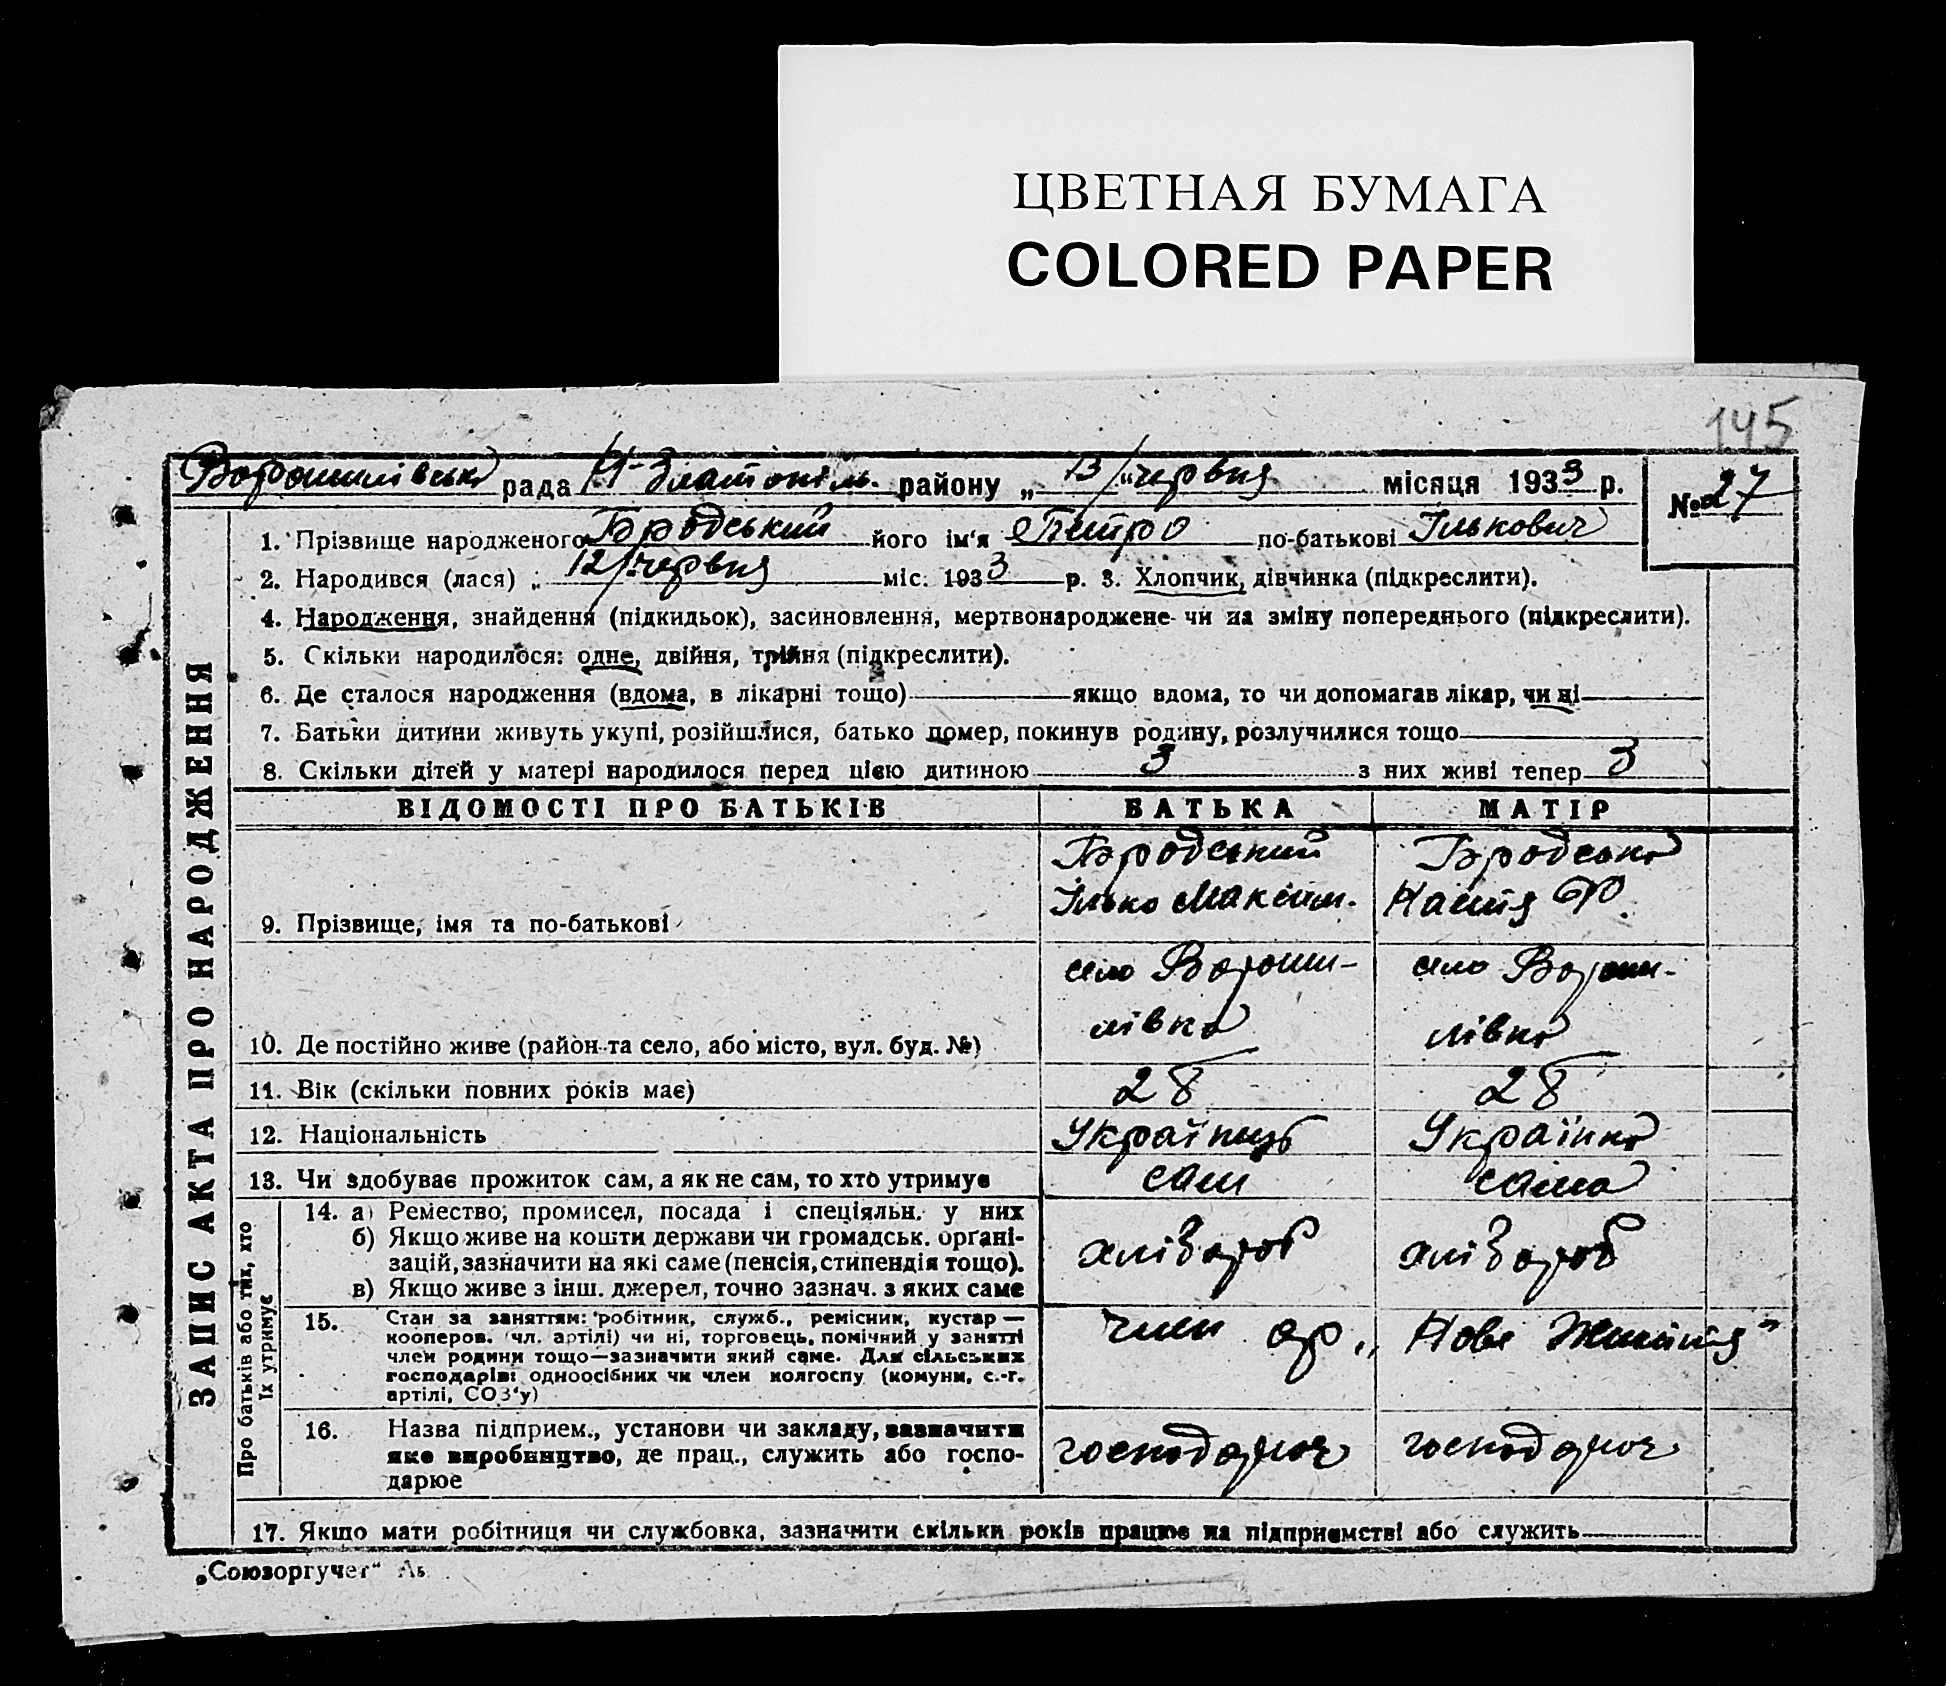 ЦВЕТНАЯ БУМАГА
COLORED PAPER
145
Ворошилівська рада Н-Златопіль. району „13" червня місяця 1933 р. № 27
ЗАПИС АКТА ПРО НАРОДЖЕННЯ
1. Прізвище народженого Бродський його ім'я Петро по-батькові Ількович
2. Народився (лася) „12" червня міс. 1933 р. 3. Хлопчик, дівчинка (підкреслити).
4. Народження, знайдення (підкидьок), засиновлення, мертвонароджене чи на зміну попереднього (підкреслити).
5. Скільки народилося: одне, двійня, трійня (підкреслити).
6. Де сталося народження (вдома, в лікарні тощо) якщо вдома, то чи допомагав лікар, чи ні
7. Батьки дитини живуть укупі, розійшлися, батько помер, покинув родину, розлучилися тощо
8. Скільки дітей у матері народилося перед цією дитиною 3 з них живі тепер 3
ВІДОМОСТІ ПРО БАТЬКІВ БАТЬКА МАТІР
9. Прізвище, імя та по-батькові Бродський Ілько Максим. Бродська Настя Ф
10. Де постійно живе (район та село, або місто, вул. буд. №) село Вороши-лівка село Вороши-лівка
11. Вік (скільки повних років має) 28 28
12. Національність Українець Українка
13. Чи здобуває прожиток сам, а як не сам, то хто утримує сам сама
Про батьків або тих, хто
їх утримує
14. а) Ремество, промисел, посада і спеціяльн. у них
б) Якщо живе на кошти держави чи громадськ. орґані-
зацій, зазначити на які саме (пенсія, стипендія тощо).
в) Якщо живе з інш. джерел, точно зазнач. з яких саме
хлібороб хлібороб
15. Стан за заняттям: робітник, служб., ремісник, кустар—
кооперов. (чл. артілі) чи ні, торговець, помічний у занятті
член родини тощо—зазначити який саме. Для сільських
господарів: одноосібних чи член колгоспу (комуни, с.-г.
артілі, СОЗ'у)
член ар. „Нове Життя"
16. Назва підприєм., установи чи закладу, зазначити
яке виробництво, де прац., служить або госпо-
дарює
господарює господарює
17. Якщо мати робітниця чи службовка, зазначити скільки років працює на підприємстві або служить
„Союзоргучет"